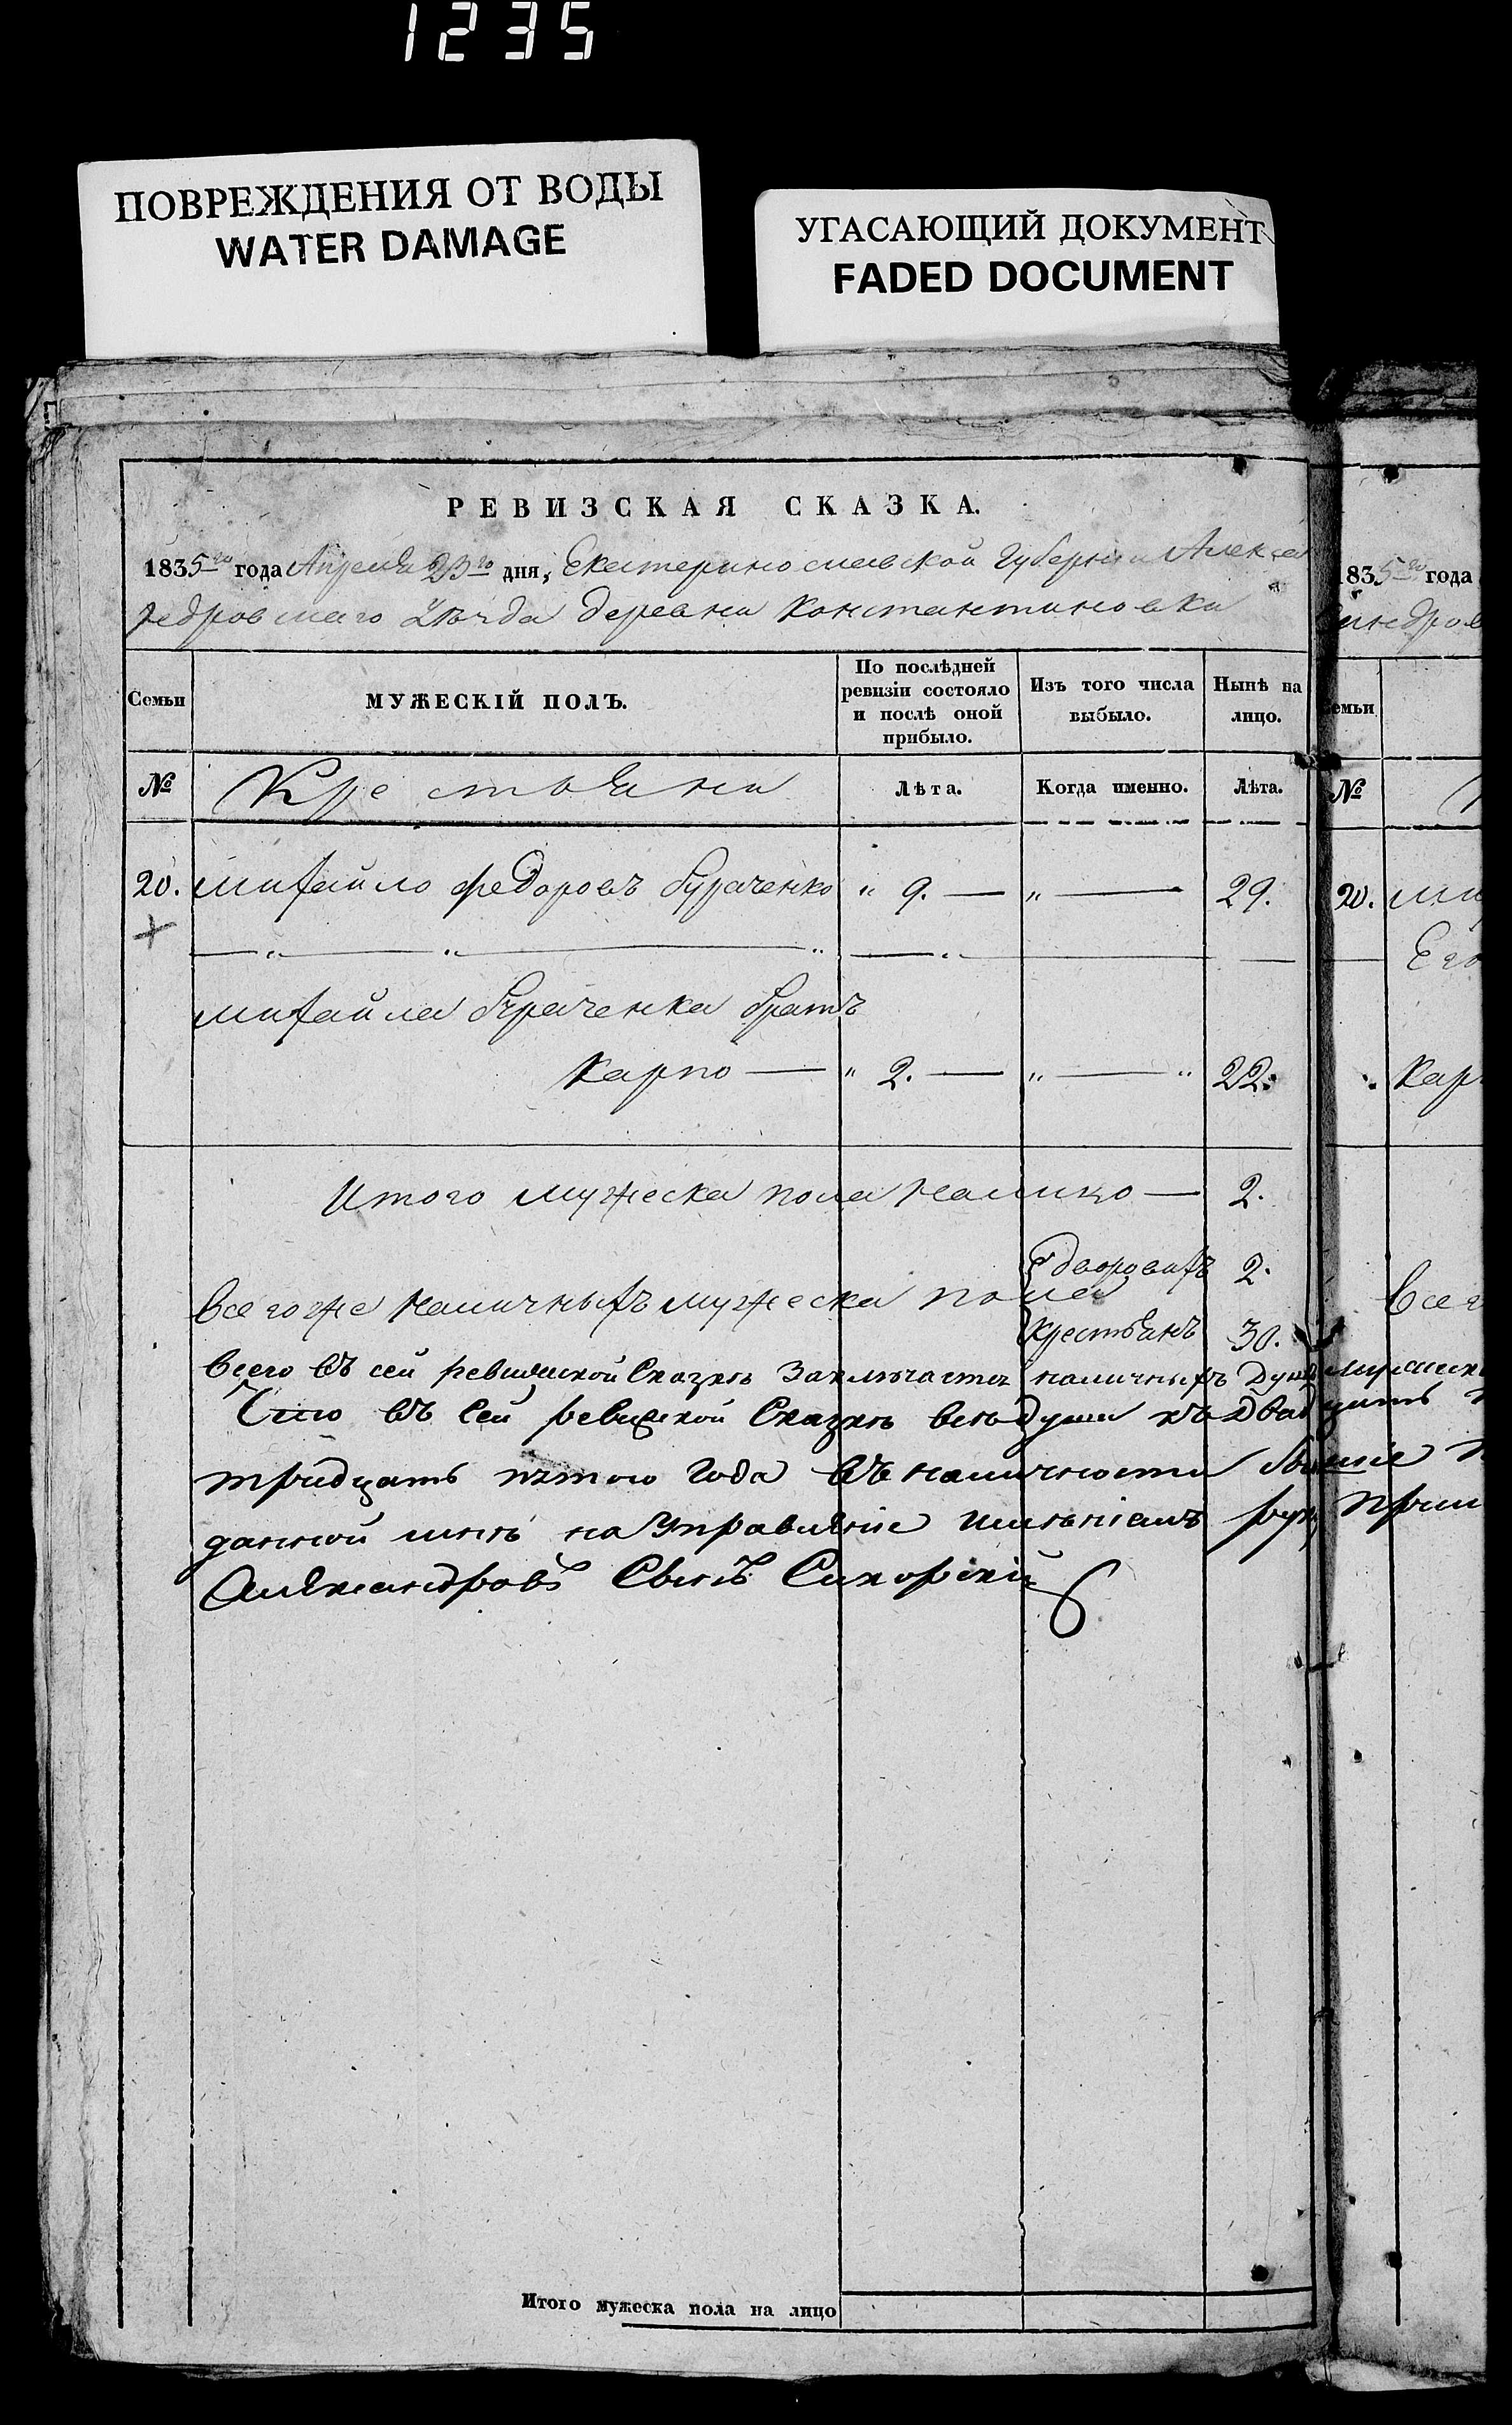 1235
ПОВРЕЖДЕНИЯ ОТ ВОДЫ
WATER DAMAGE
УГАСАЮЩИЙ ДОКУМЕНТ
FADED DOCUMENT
РЕВИЗСКАЯ СКАЗКА.
1835го года Апреля 23го дня, Екатеринославской Губернии Алекса
ндровскаго Уѣзда деревни Константиновки
Семьи
МУЖЕСКІЙ ПОЛЪ.
По послѣдней ревизіи состояло и послѣ оной прибыло.
Изъ того числа выбыло.
Нынѣ на лицо.
№ Крестьяни Лѣта. Когда именно. Лѣта.
20. Михайло Федоровъ Бураченко " 9. — " — 29.
Михайла Бураченка братъ
Карпо — " 2. — " — " 22.
Итого мужеска пола налицо — 2.
дворовыхъ 2.
Всегоже наличныхъ мужеска пола
крестьянъ 30.
Всего въ сей ревизской Сказкѣ Заключается наличныхъ Душъ
Что въ Сей ревизской Сказкѣ всѣ души къ Двадцать
тридцать пятого Года въ наличности бывшіе
данной мнѣ на Управленіе имѣніемъ
Александровъ Сынъ Сикорскій
Итого мужеска пола на лицо
1835го года
Семьи
№
20.
Его
Кар
Всег